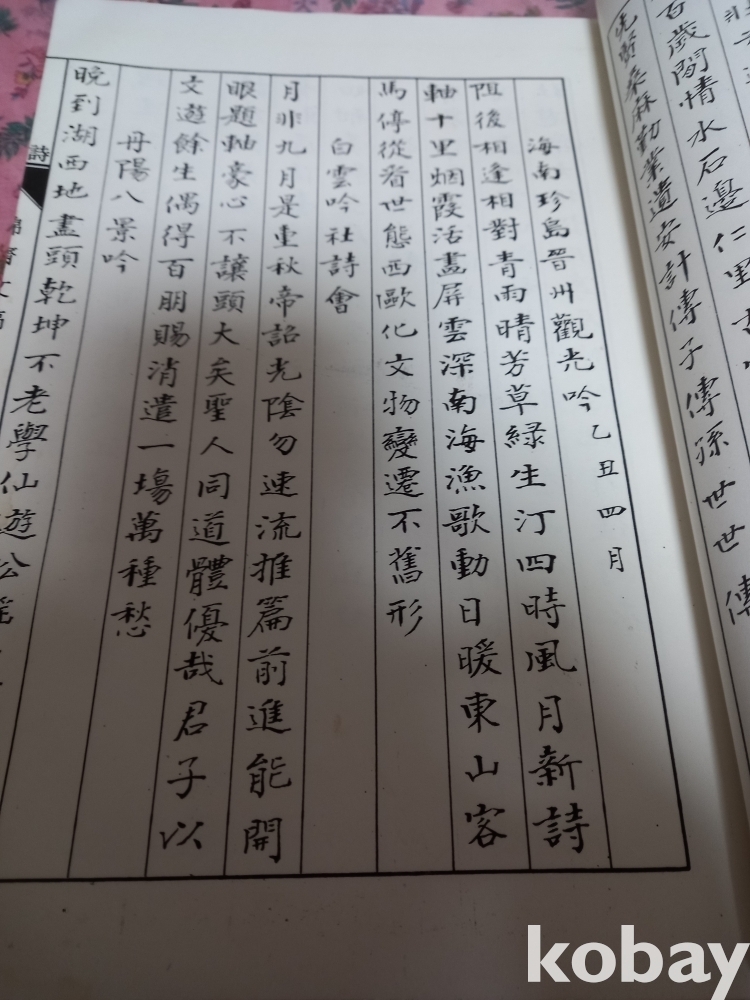 百歲閒情水石邊仁里
桑麻勤業遺安計傳子傳孫世世傳
海南珍島晉州觀光吟 乙丑四月
阻後相逢相對青雨晴芳草綠生汀四時風月新詩
軸十里烟霞活畫屏雲深南海漁歌動日暖東山客
馬停從看世態西歐化文物變遷不舊形
白雲吟社詩會
月非九月是重秋帝詔光陰勿速流推篇前進能開
眼題軸豪心不讓頭大矣聖人同道體優哉君子以
文遊餘生偶得百朋賜消遣一場萬種愁
丹陽八景吟
晚到湖西地盡頭乾坤不老學仙遊
詩
kobay